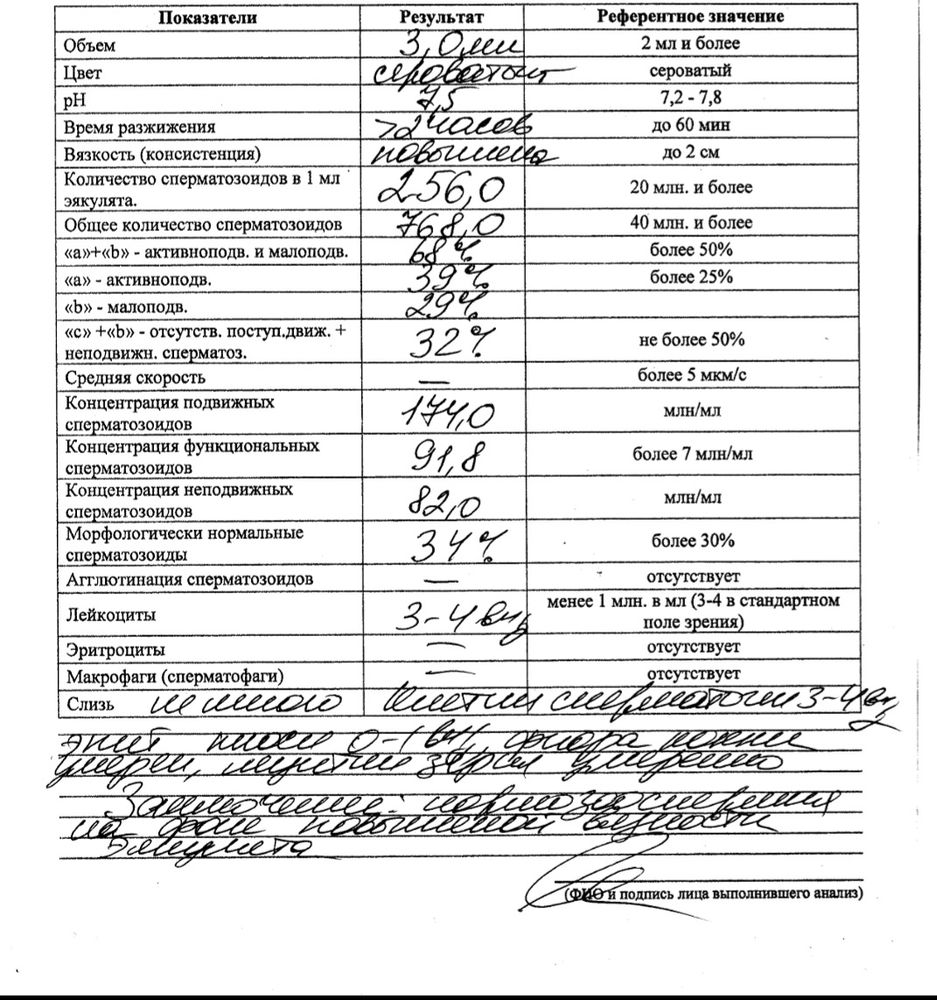 Показатели Результат Референтное значение
Объем 3,0 мл 2 мл и более
Цвет сероватый сероватый
pH 7,5 7,2 - 7,8
Время разжижения >2 часов до 60 мин
Вязкость (консистенция) повышена до 2 см
Количество сперматозоидов в 1 мл
эякулята. 256,0 20 млн. и более
Общее количество сперматозоидов 768,0 40 млн. и более
«а»+«b» - активноподв. и малоподв. 68% более 50%
«а» - активноподв. 39% более 25%
«b» - малоподв. 29%
«с» +«b» - отсутств. поступ.движ. +
неподвижн. сперматоз. 32% не более 50%
Средняя скорость — более 5 мкм/с
Концентрация подвижных
сперматозоидов 174,0 млн/мл
Концентрация функциональных
сперматозоидов 91,8 более 7 млн/мл
Концентрация неподвижных
сперматозоидов 82,0 млн/мл
Морфологически нормальные
сперматозоиды 34% более 30%
Агглютинация сперматозоидов — отсутствует
Лейкоциты 3-4 в п/з менее 1 млн. в мл (3-4 в стандартном
поле зрения)
Эритроциты — отсутствует
Макрофаги (сперматофаги) — отсутствует
Слизь немного Клетки сперматог 3-4 в п/з
эпит плоск 0-1 в п/з, флора
умерен, зёрна умеренно
Заключение: нормозооспермия
на фоне повышенной вязкости
эякулята
(ФИО и подпись лица выполнившего анализ)